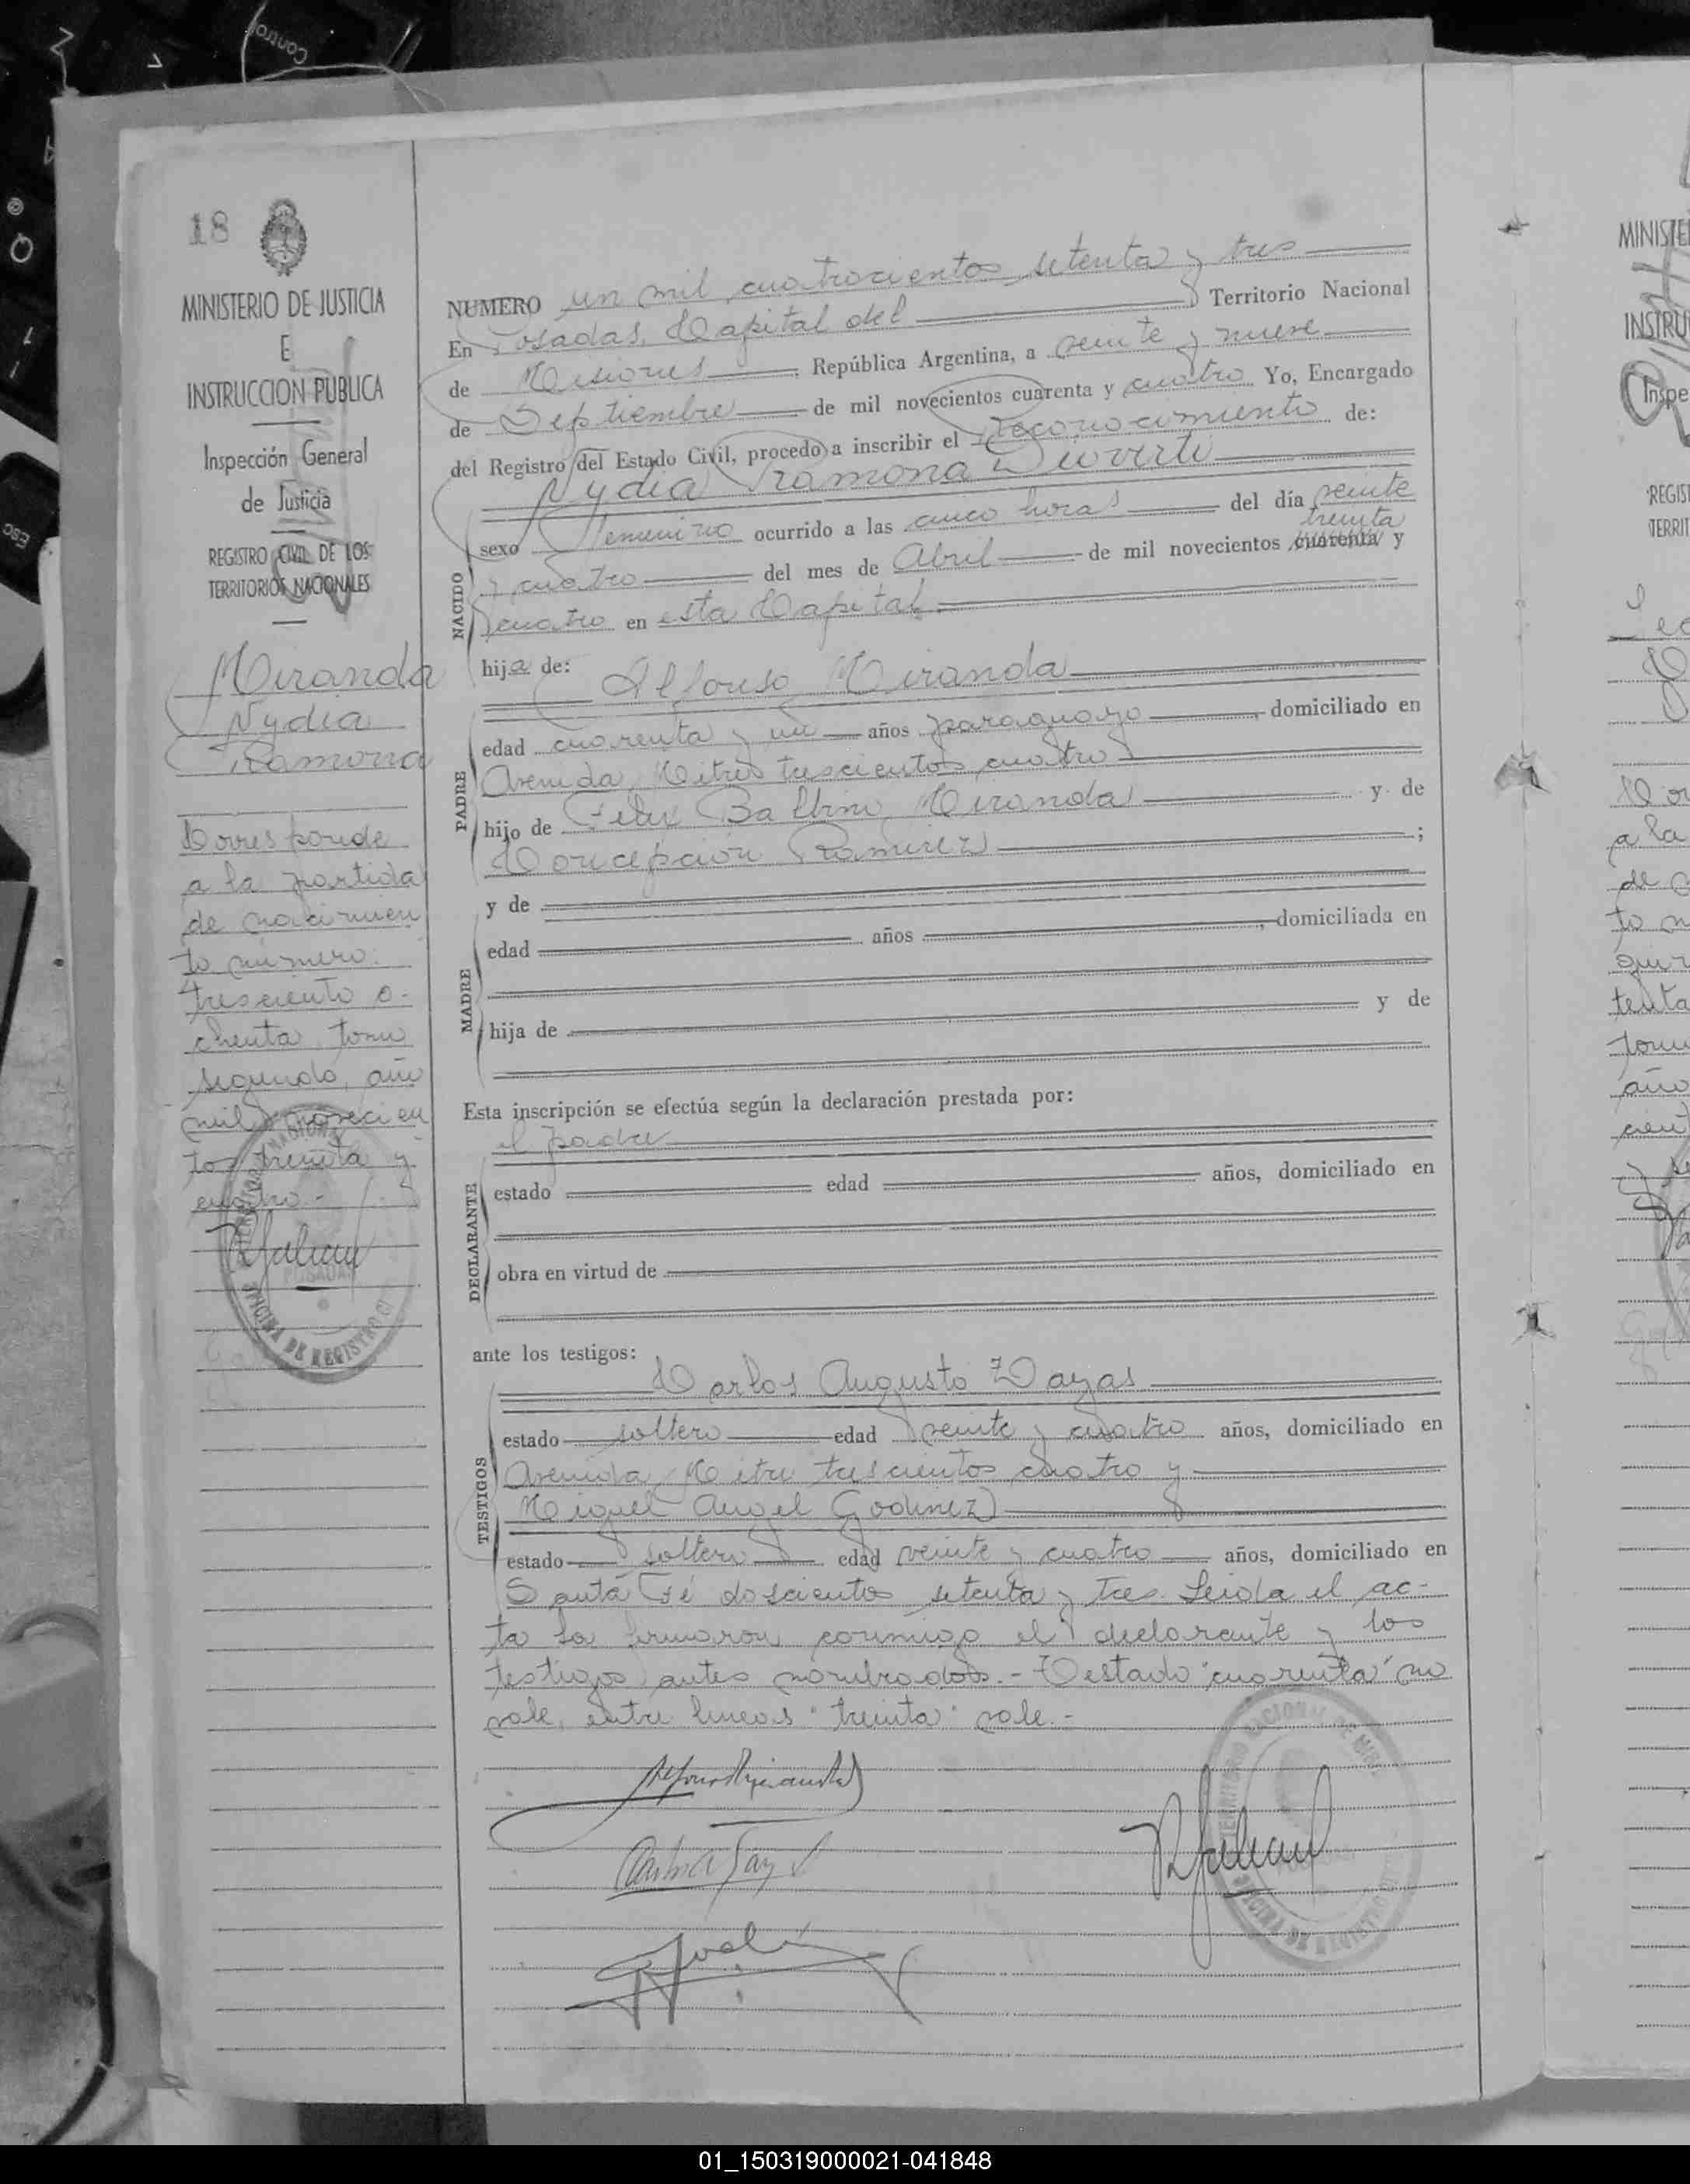 18
MINISTERIO DE JUSTICIA
E
INSTRUCCION PUBLICA
Inspección General
de Justicia
REGISTRO CIVIL DE LOS
TERRITORIOS NACIONALES
Miranda
Nydia
Ramona
Corresponde
a la partida
de nacimien
to número:
tresciento o-
chenta, tomo
segundo, año
mil novecien
tos treinta y
cuatro.-
POSADAS
OFICINA DE REGISTRO CI
NUMERO un mil cuatrocientos setenta y tres
En Posadas, Capital del Territorio Nacional
de Misiones, República Argentina, a veinte y nueve
de Septiembre de mil novecientos cuarenta y cuatro Yo, Encargado
del Registro del Estado Civil, procedo a inscribir el Reconocimiento de:
Nydia Ramona
NACIDO
sexo femenino ocurrido a las cinco horas del día veinte
treinta
y cuatro del mes de Abril de mil novecientos cuarenta y
cuatro en esta Capital
hija de: Alfonso Miranda
PADRE
edad cuarenta y un años paraguayo, domiciliado en
Avenida Mitre trescientos cuatro
hijo de Felix Balbino Miranda y de
Concepción Ramirez;
MADRE
y de
edad años, domiciliada en
hija de y de
Esta inscripción se efectúa según la declaración prestada por:
el padre
DECLARANTE
estado edad años, domiciliado en
obra en virtud de
ante los testigos:
Carlos Augusto Zayas
TESTIGOS
estado soltero edad veinte y cuatro años, domiciliado en
Avenida Mitre trescientos cuatro y
Miguel Angel Godinez
estado soltero edad veinte y cuatro años, domiciliado en
Santa Fé doscientos setenta y tres. Leida el ac-
ta la firmaron conmigo el declarante y los
testigos antes nombrados.- Testado "cuarenta" no
vale, entre lineas "treinta" vale.-
OFICINA DE REGISTRO CI
MINISTE
INSTRU
Inspe
REGIST
TERRIT
a la
de
to
01_150319000021-041848